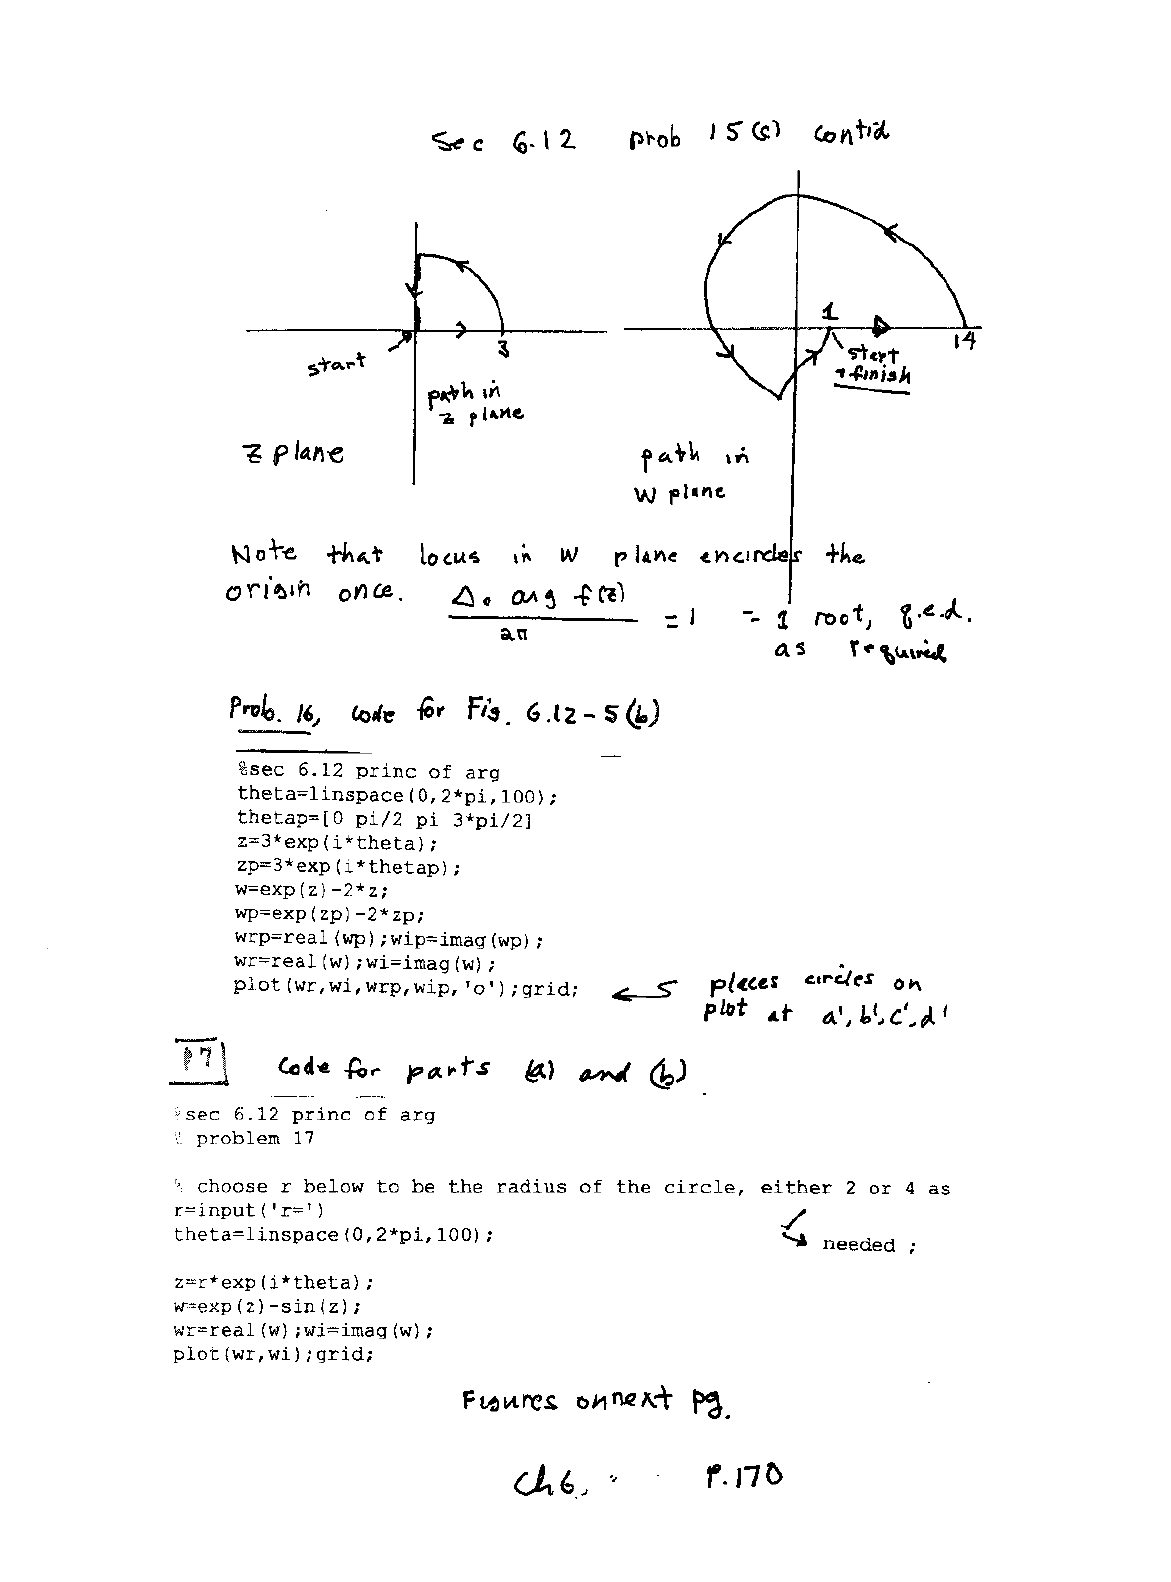 Sec 6.12 prob 15(c) cont'd
1
14
start
+ finish
3
start
path in
z plane
z plane
path in
w plane
Note that locus in w plane encircles the
origin once. Δc arg f(z) / 2π = 1 = 1 root, q.e.d.
as required
Prob. 16, code for Fig. 6.12-5(b)
%sec 6.12 princ of arg
theta=linspace(0,2*pi,100);
thetap=[0 pi/2 pi 3*pi/2]
z=3*exp(i*theta);
zp=3*exp(i*thetap);
w=exp(z)-2*z;
wp=exp(zp)-2*zp;
wrp=real(wp);wip=imag(wp);
wr=real(w);wi=imag(w);
plot(wr,wi,wrp,wip,'o');grid; ← places circles on
plot at a', b', c', d'
17 Code for parts (a) and (b)
%sec 6.12 princ of arg
% problem 17
% choose r below to be the radius of the circle, either 2 or 4 as
r=input('r=')
theta=linspace(0,2*pi,100);
needed ;
z=r*exp(i*theta);
w=exp(z)-sin(z);
wr=real(w);wi=imag(w);
plot(wr,wi);grid;
Figures on next pg.
Ch 6, P.170